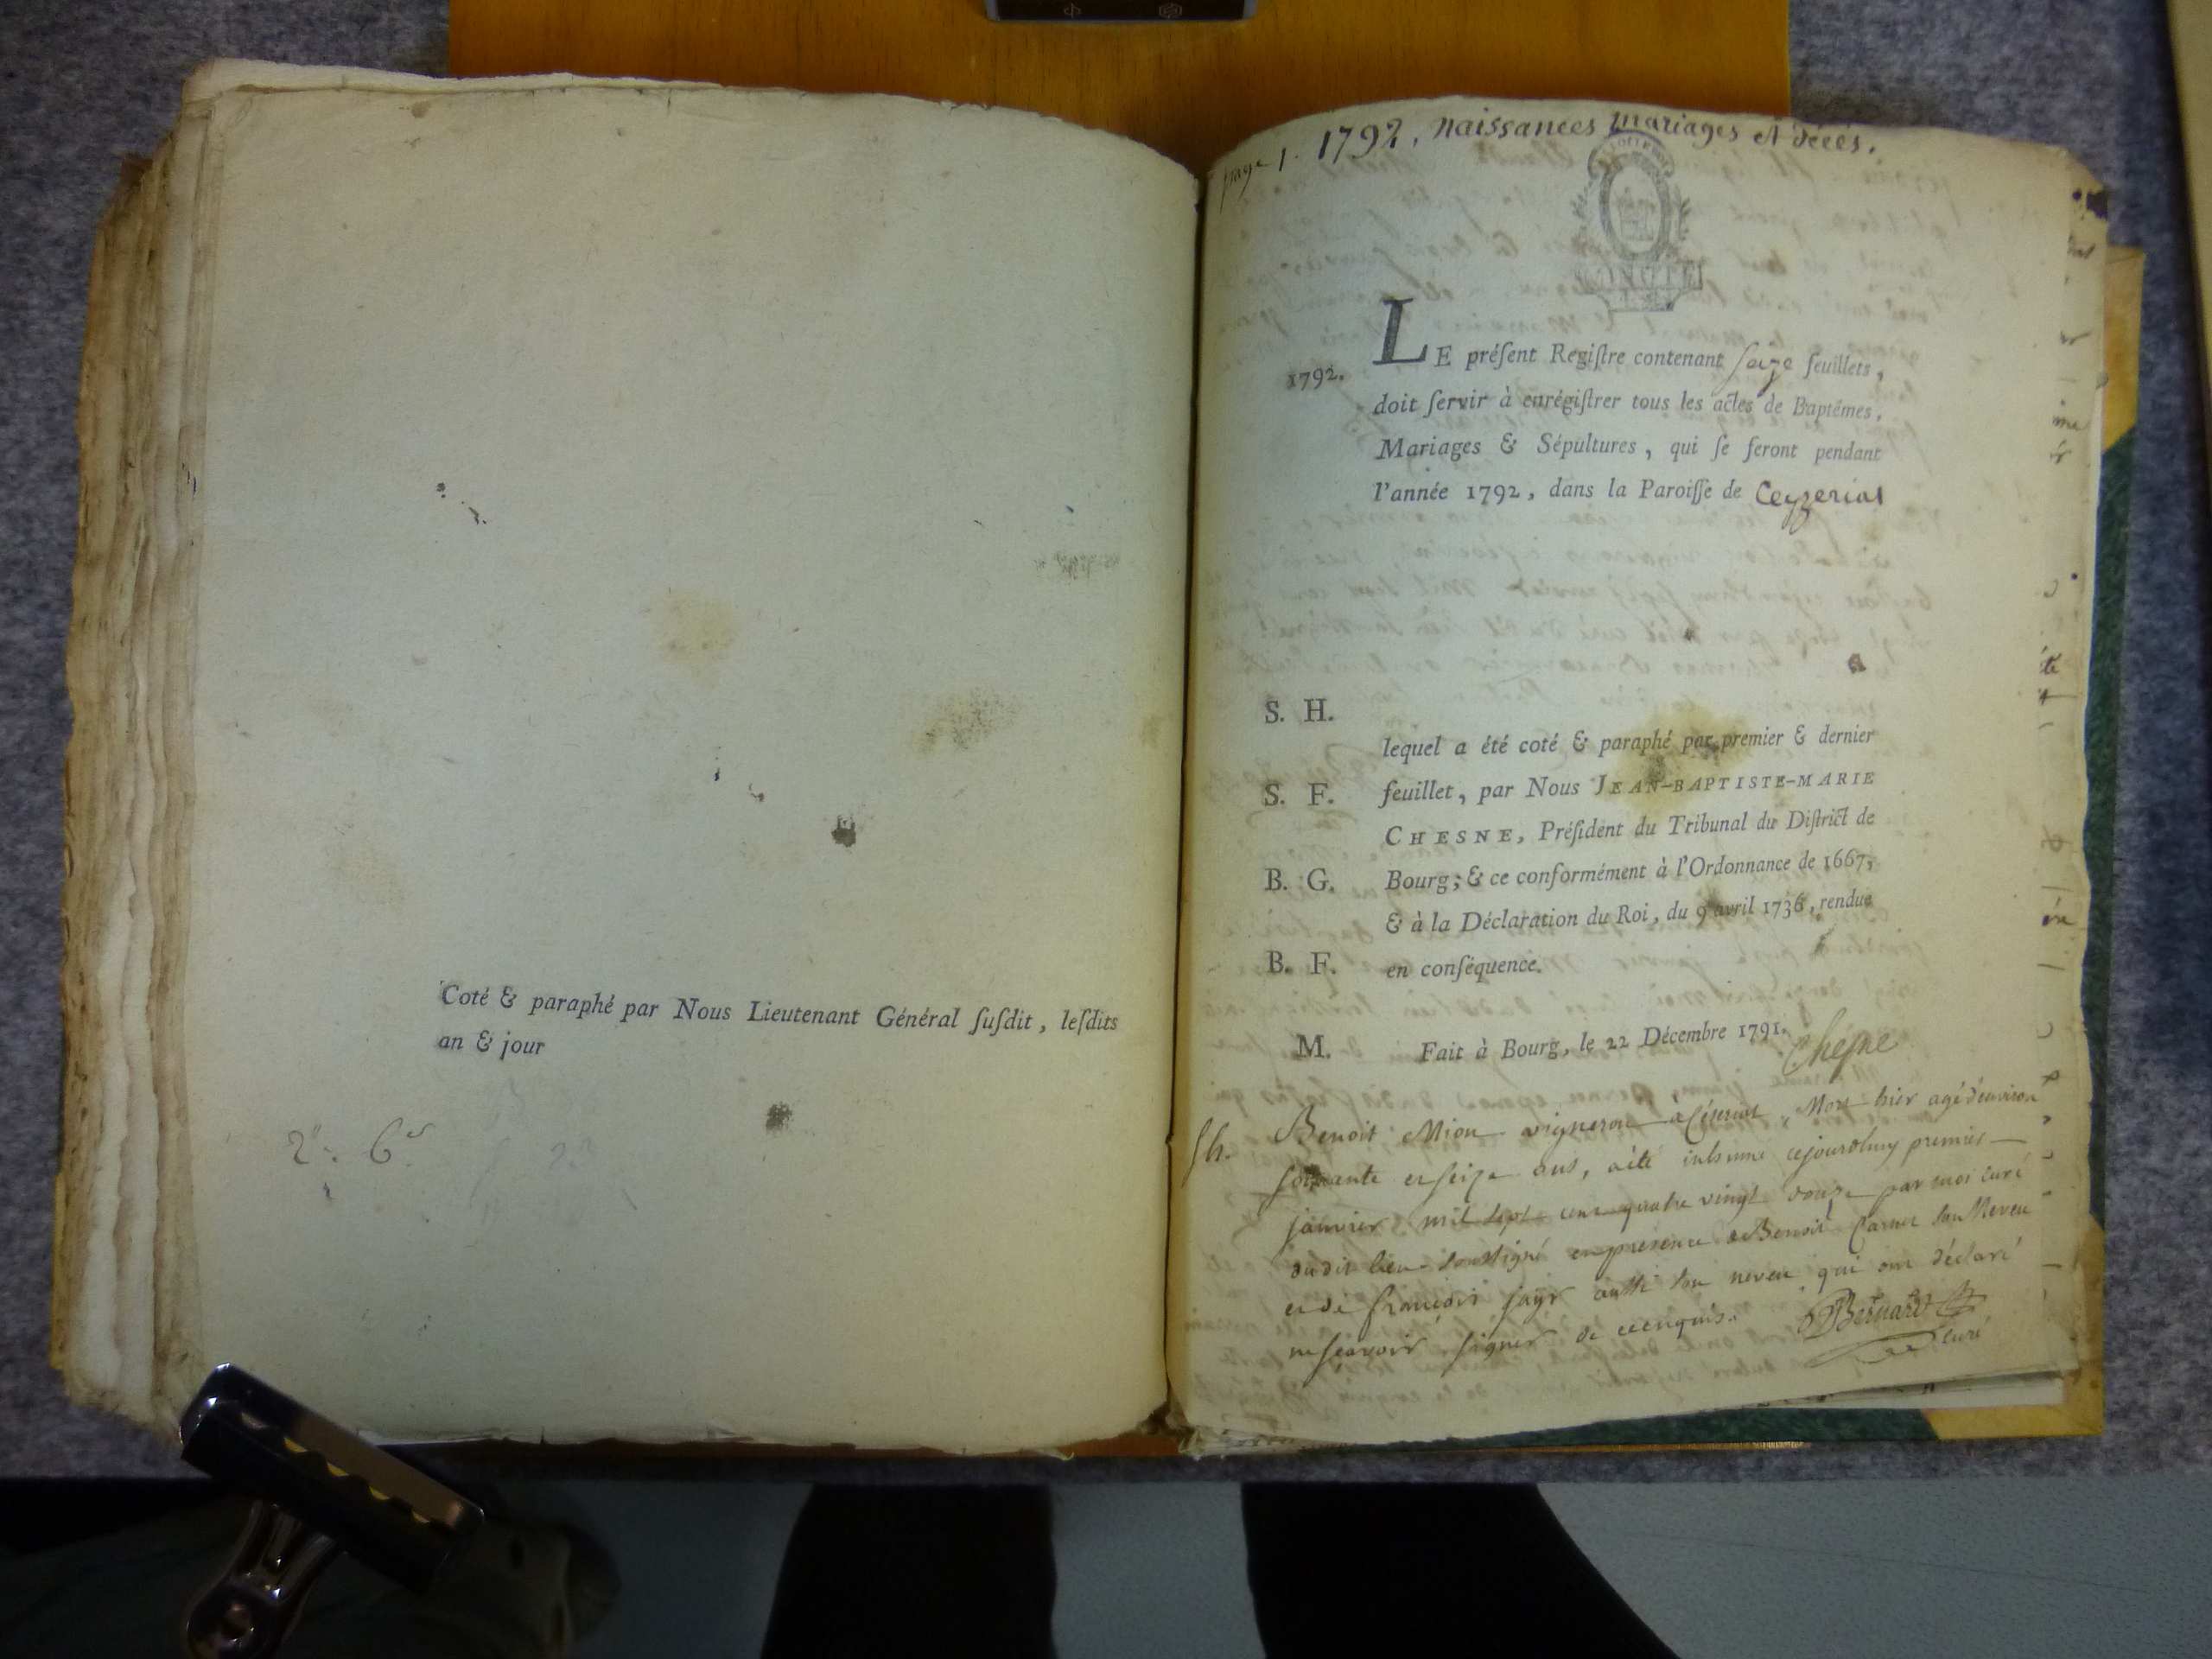 Coté & paraphé par Nous Lieutenant Général ſuſdit, leſdits
an & jour
page 1. 1792, naissances mariages et décès.
1792.
LE préſent Regiſtre contenant seize feuillets,
doit ſervir à enrégiſtrer tous les actes de Baptêmes,
Mariages & Sépultures, qui ſe feront pendant
l'année 1792, dans la Paroiſſe de Ceyzeriat
S. H.
lequel a été coté & paraphé par premier & dernier
S. F. feuillet, par Nous JEAN-BAPTISTE-MARIE
CHESNE, Préſident du Tribunal du Diſtrict de
B. G. Bourg; & ce conformément à l'Ordonnance de 1667,
& à la Déclaration du Roi, du 9 avril 1736, rendue
B. F. en conſéquence.
M. Fait à Bourg, le 22 Décembre 1791. Chesne
Sh. Benoit Mion vigneron a Céseriat, Mort hier agé d'environ
soixante et seize ans, a été inhumé cejourdhuy premier
janvier mil sept cent quatre vingt douze par moi curé
dudit lieu soussigné en presence de Benoit Carner son Neveu
et de françois fayr aussi son neveu qui ont déclaré
ne sçavoir signer de ce enquis. Bernard
curé